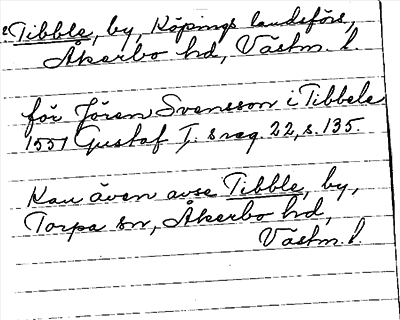 Tibble, by, Köpings landsförs,
Åkerbo hd, Västm. l.
för Jören Svensson i Tibbele
1551 Gustaf I: s reg. 22, s. 135.
Kan även avse Tibble, by,
Torpa sn, Åkerbo hd,
Västm. l.